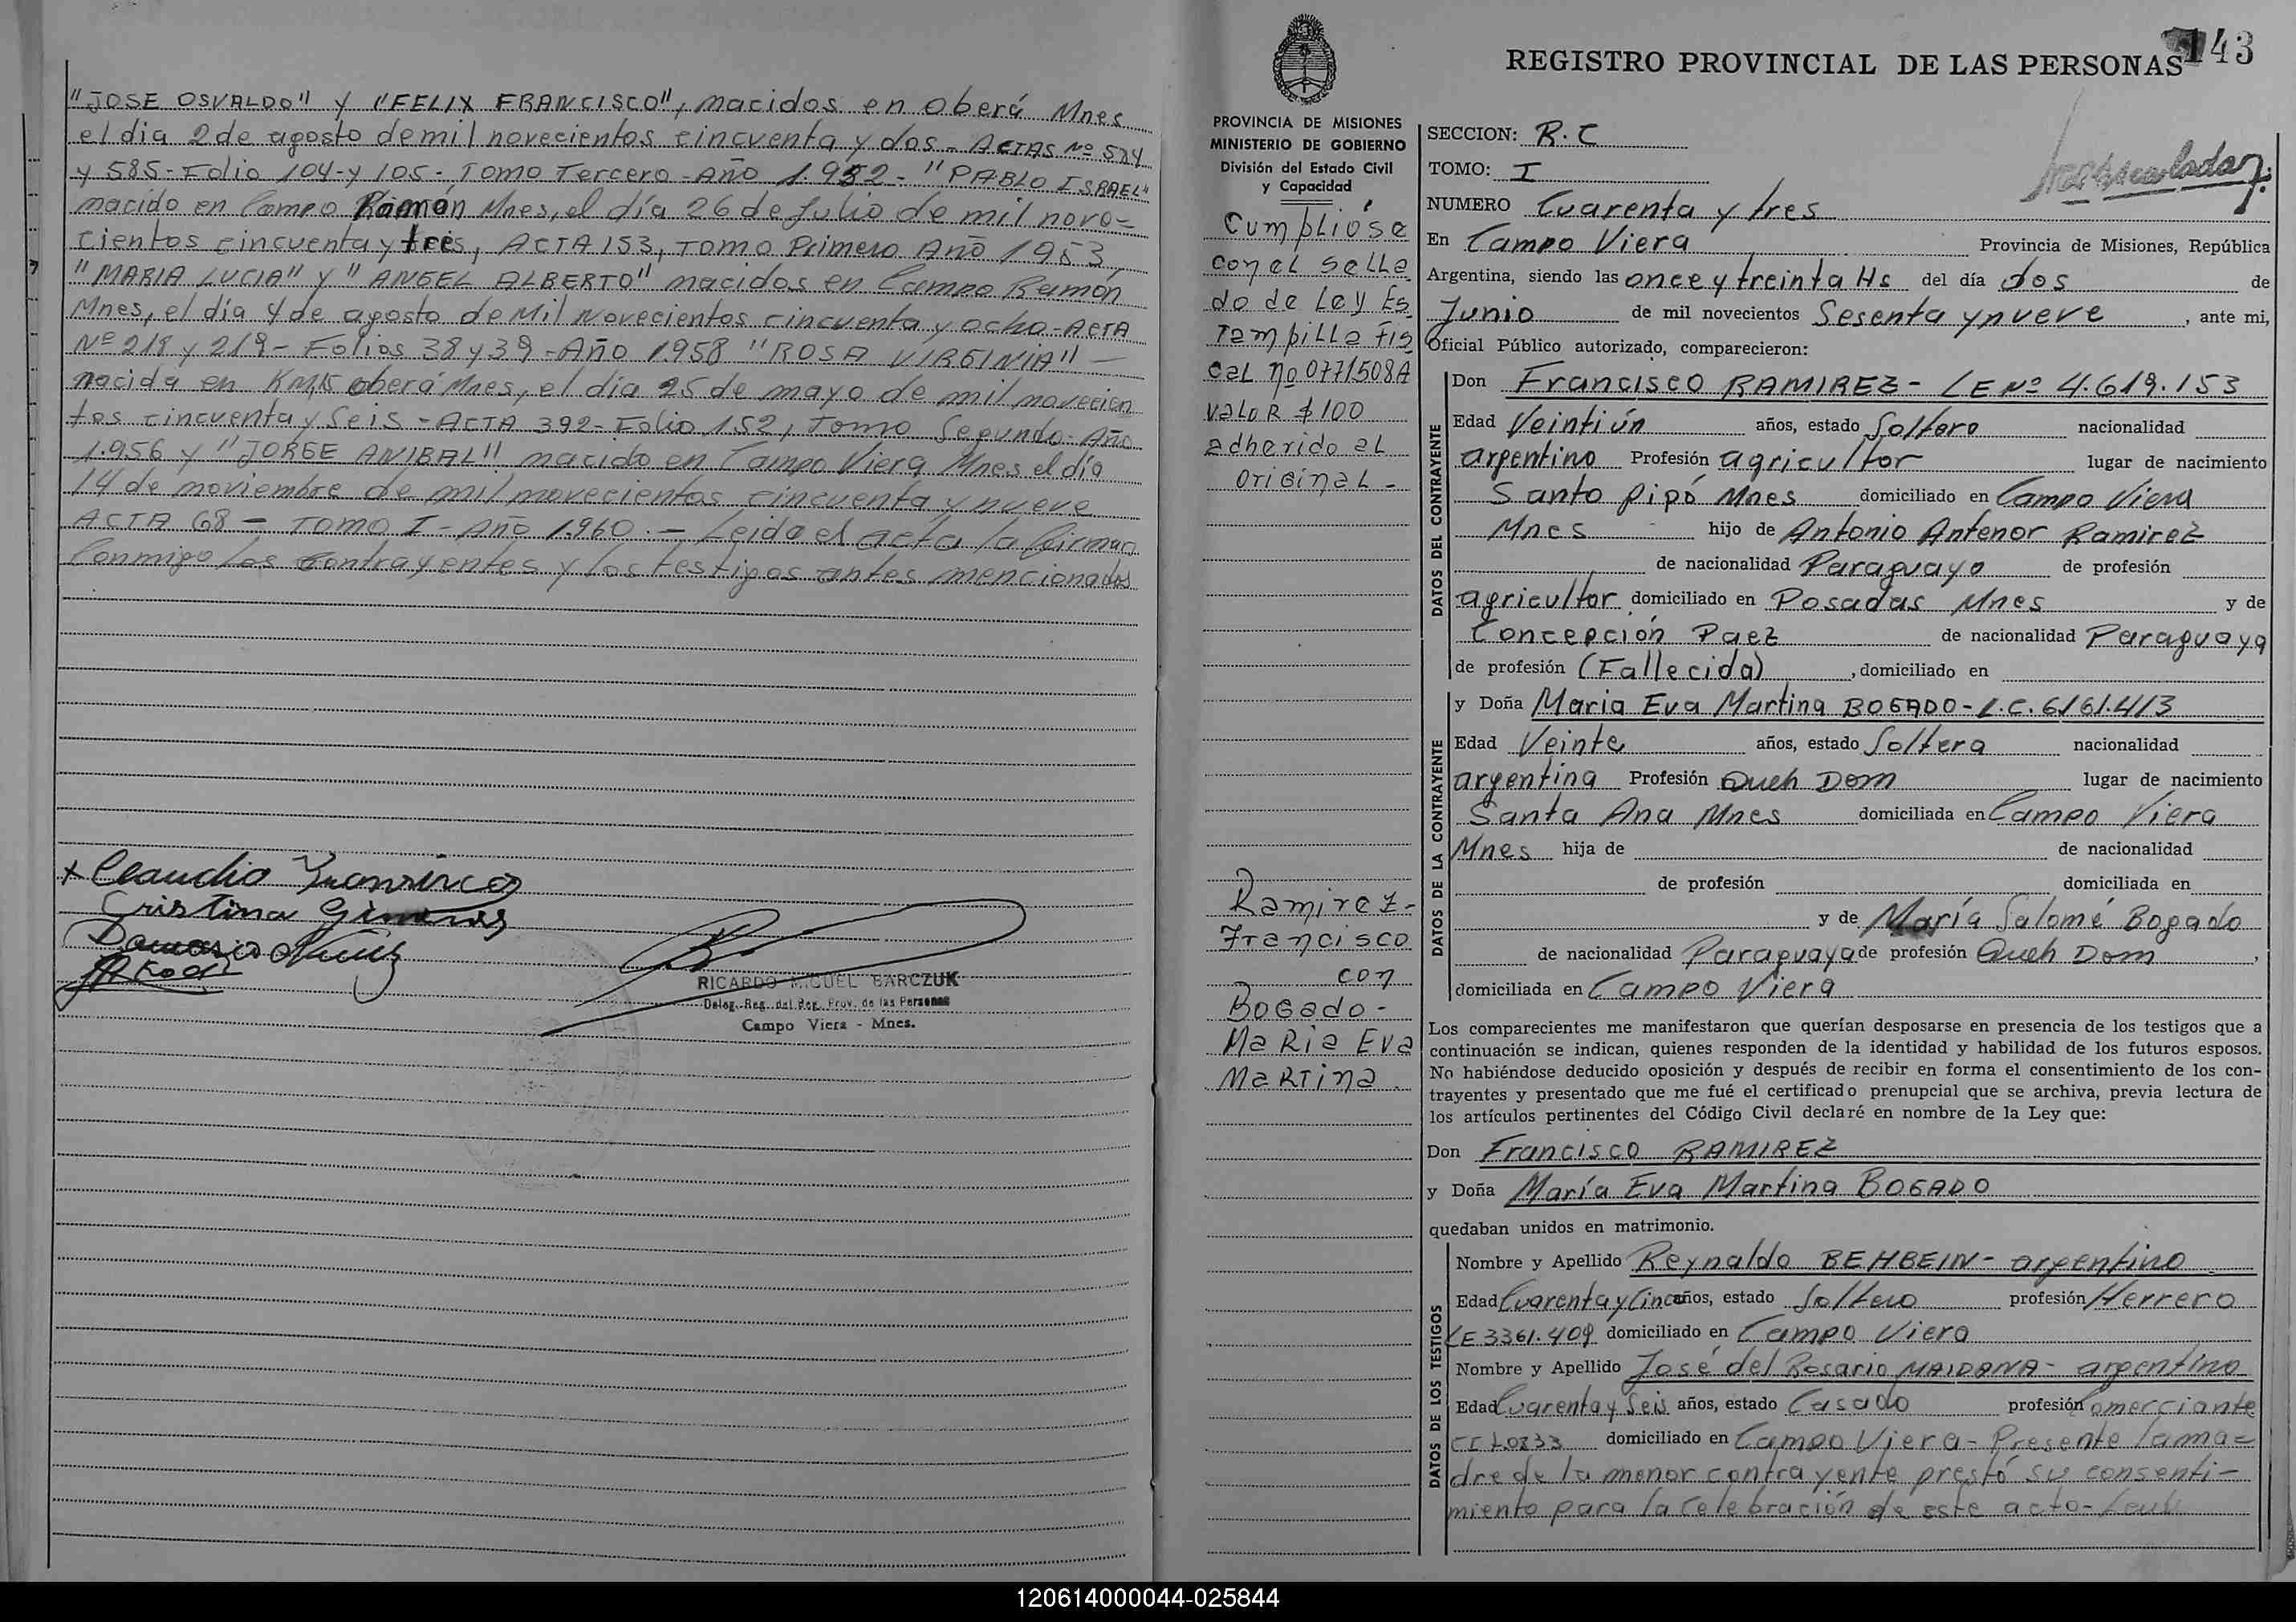 "JOSE OSVALDO" y "FELIX FRANCISCO", nacidos en oberá Mnes
el dia 2 de agosto de mil novecientos cincuenta y dos - ACTAS Nº 584
y 585 - Folio 104 - y 105 - Tomo Tercero - Año 1.952 - "PABLO ISRAEL"
nacido en Campo Ramón Mnes, el día 26 de Julio de mil nove=
cientos cincuenta y tres, ACTA 153, Tomo Primero Año 1953,
"MARIA LUCIA" y "ANGEL ALBERTO" nacidos en Campo Ramón
Mnes, el día 4 de agosto de Mil Novecientos cincuenta y ocho - ACTA
Nº 218 y 219 - Folios 38 y 39 - Año 1.958 "ROSA VIRGINIA" -
nacida en KM, 15 oberá Mnes, el día 25 de mayo de mil novecien
tos cincuenta y Seis - ACTA 392 - Folio 152, Tomo Segundo - Año
1.956 y "JORGE ANIBAL" nacido en Campo Viera Mnes el día
14 de noviembre de mil novecientos cincuenta y nueve
ACTA 68 - TOMO I - Año 1.960. - Leida el acta la firman
Conmigo los contrayentes y los testigos antes mencionados
x Claudio
Cristina Gimenes
RICARDO MIGUEL BARCZUK
Deleg. Reg. del Reg. Prov. de las Personas
Campo Viera - Mnes.
143
REGISTRO PROVINCIAL DE LAS PERSONAS
PROVINCIA DE MISIONES
MINISTERIO DE GOBIERNO
División del Estado Civil
y Capacidad
Cumplióse
con el sella
do de Ley Es
Tampilla Fis
cal nº 0771508A
valor $ 100
adherido al
original -
Ramirez -
Francisco
con
Bogado -
Maria Eva
Martina
SECCION: R.C
TOMO: I
NUMERO Cuarenta y tres
En Campo Viera Provincia de Misiones, República
Argentina, siendo las once y treinta Hs del día dos de
Junio de mil novecientos Sesenta y nueve, ante mi,
Oficial Público autorizado, comparecieron:
DATOS DEL CONTRAYENTE
Don Francisco RAMIREZ - LE Nº 4.619.153
Edad Veintiún años, estado Soltero nacionalidad
argentino Profesión agricultor lugar de nacimiento
Santo Pipó Mnes domiciliado en Campo Viera
Mnes hijo de Antonio Antenor Ramirez
de nacionalidad Paraguayo de profesión
agricultor domiciliado en Posadas Mnes y de
Concepción Paez de nacionalidad Paraguaya
de profesión (Fallecida), domiciliado en
DATOS DE LA CONTRAYENTE
y Doña Maria Eva Martina BOGADO - L.C. 6.161.413
Edad Veinte años, estado Soltera nacionalidad
argentina Profesión Queh Dom lugar de nacimiento
Santa Ana Mnes domiciliada en Campo Viera
Mnes hija de de nacionalidad
de profesión domiciliada en
y de María Salomé Bogado
de nacionalidad Paraguaya de profesión Queh Dom,
domiciliada en Campo Viera
Los comparecientes me manifestaron que querían desposarse en presencia de los testigos que a
continuación se indican, quienes responden de la identidad y habilidad de los futuros esposos.
No habiéndose deducido oposición y después de recibir en forma el consentimiento de los con-
trayentes y presentado que me fué el certificado prenupcial que se archiva, previa lectura de
los artículos pertinentes del Código Civil declaré en nombre de la Ley que:
Don Francisco RAMIREZ
y Doña María Eva Martina BOGADO
quedaban unidos en matrimonio.
DATOS DE LOS TESTIGOS
Nombre y Apellido Reynaldo BEHBEIN - argentino
Edad Cuarenta y Cinco años, estado Soltero profesión Herrero
LE 3361.409 domiciliado en Campo Viera
Nombre y Apellido José del Rosario MAIDANA - argentino
Edad Cuarenta y Seis años, estado Casado profesión Comerciante
domiciliado en Campo Viera - Presente la ma=
dre de la menor contrayente prestó su consenti-
miento para la celebración de este acto -
120614000044-025844